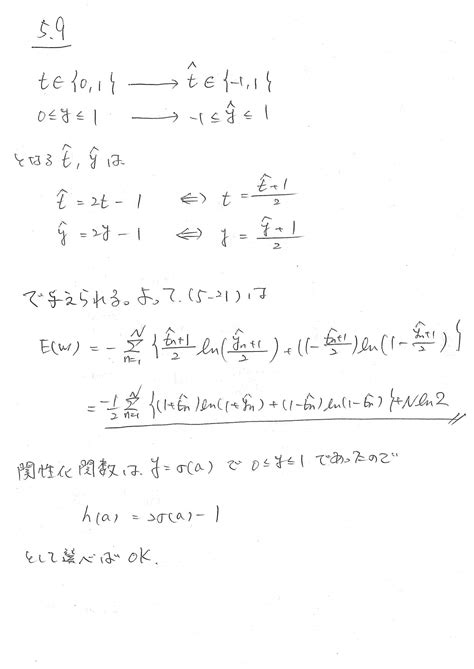 5.9
t ∈ {0,1} → t̂ ∈ {-1,1}
0 ≤ y ≤ 1 → -1 ≤ ŷ ≤ 1
となる t̂, ŷ は
t̂ = 2t - 1 ⇔ t = (t̂+1)/2
ŷ = 2y - 1 ⇔ y = (ŷ+1)/2
で与えられる。よって、(5-21)は
E(w) = - Σ_{n=1}^{N} { (t̂n+1)/2 ln((ŷn+1)/2) + (1 - (t̂n+1)/2) ln(1 - (ŷn+1)/2) }
= -1/2 Σ_{n=1}^{N} {(1+t̂n)ln(1+ŷn) + (1-t̂n)ln(1-t̂n)} + N ln2
関性化関数は y=σ(a) で 0≤y≤1 であったので
h(a) = 2σ(a) - 1
として選べば OK.